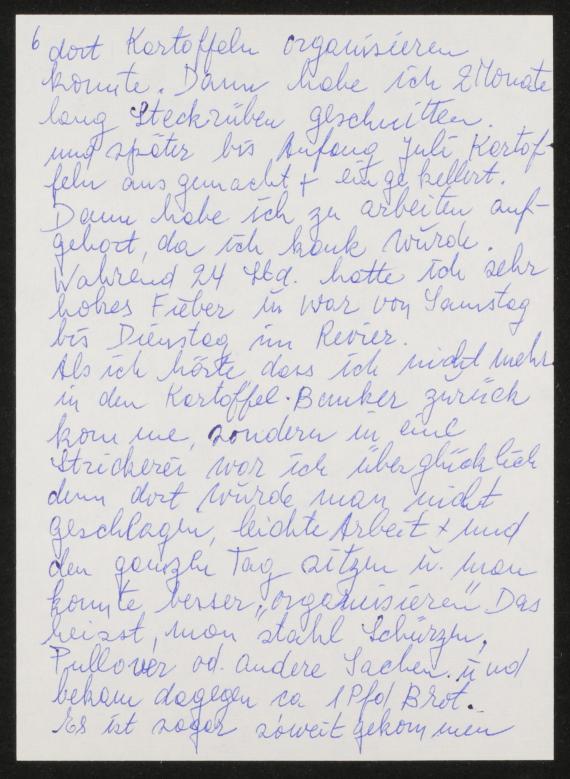 6 dort Kartoffeln organisieren
konnte. Dann habe ich 2 Monate
lang Steckrüben geschnitten.
und später bis Anfang Juli Kartof-
feln ausgemacht + eingekellert.
Dann habe ich zu arbeiten auf-
gehört, da ich krank wurde.
Während 24 Std. hatte ich sehr
hohes Fieber u war von Samstag
bis Dienstag im Revier.
Als ich hörte dass ich nicht mehr
in den Kartoffel-Bunker zurück
komme, sondern in eine
Strickerei war ich überglücklich
denn dort wurde man nicht
geschlagen, leichte Arbeit + und
den ganzen Tag sitzen u. man
konnte besser „organisieren" Das
heisst, man stahl Schürzen,
Pullover od. andere Sachen. und
bekam dagegen ca 1 Pfd Brot.
Es ist sogar soweit gekommen